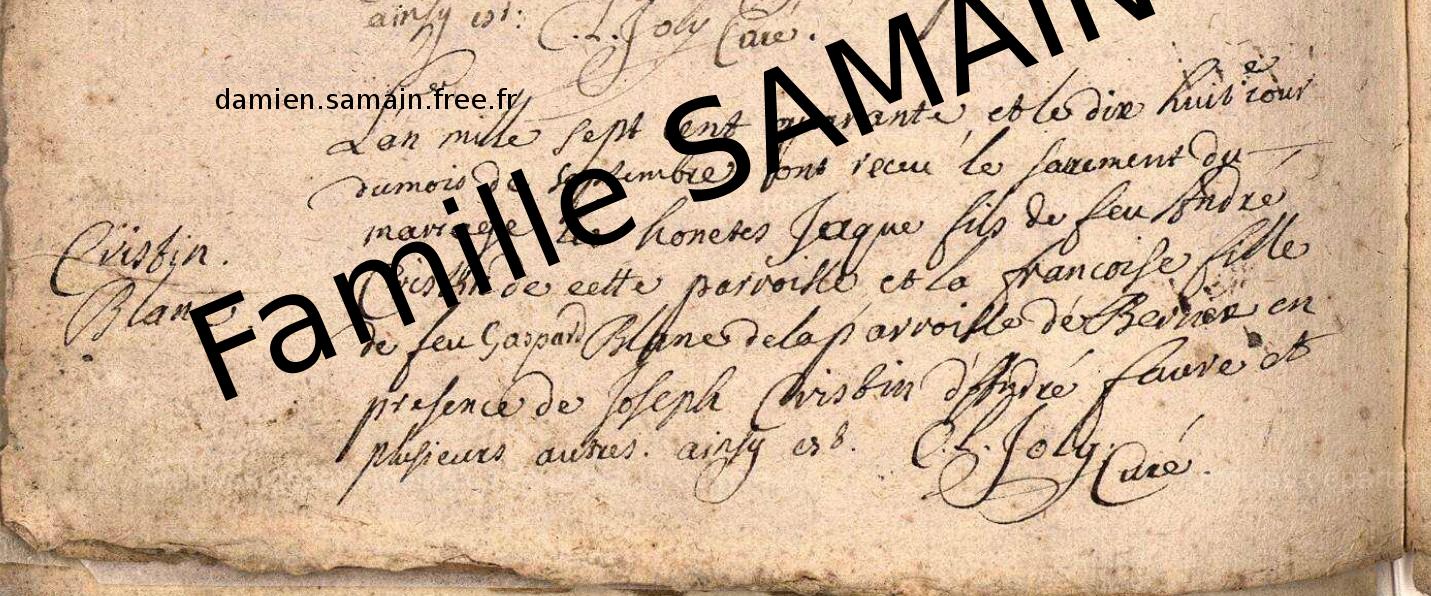 ainsy est: C. L. Joly Curé.
damien.samain.free.fr
Famille SAMAIN
Lan mille sept cent quarante et le dix huit e jour
du mois de septembre sont receu le sacrement du
mariage honetes Jaque fils de feu André
Crisbin de cette parroisse et la francoise fille
Crisbin.
Blanc
de feu Gaspard Blanc de la parroisse de en
presence de Joseph Crisbin d'André faure et
plusieurs autres. ainsy est. C. L. Joly. Curé.